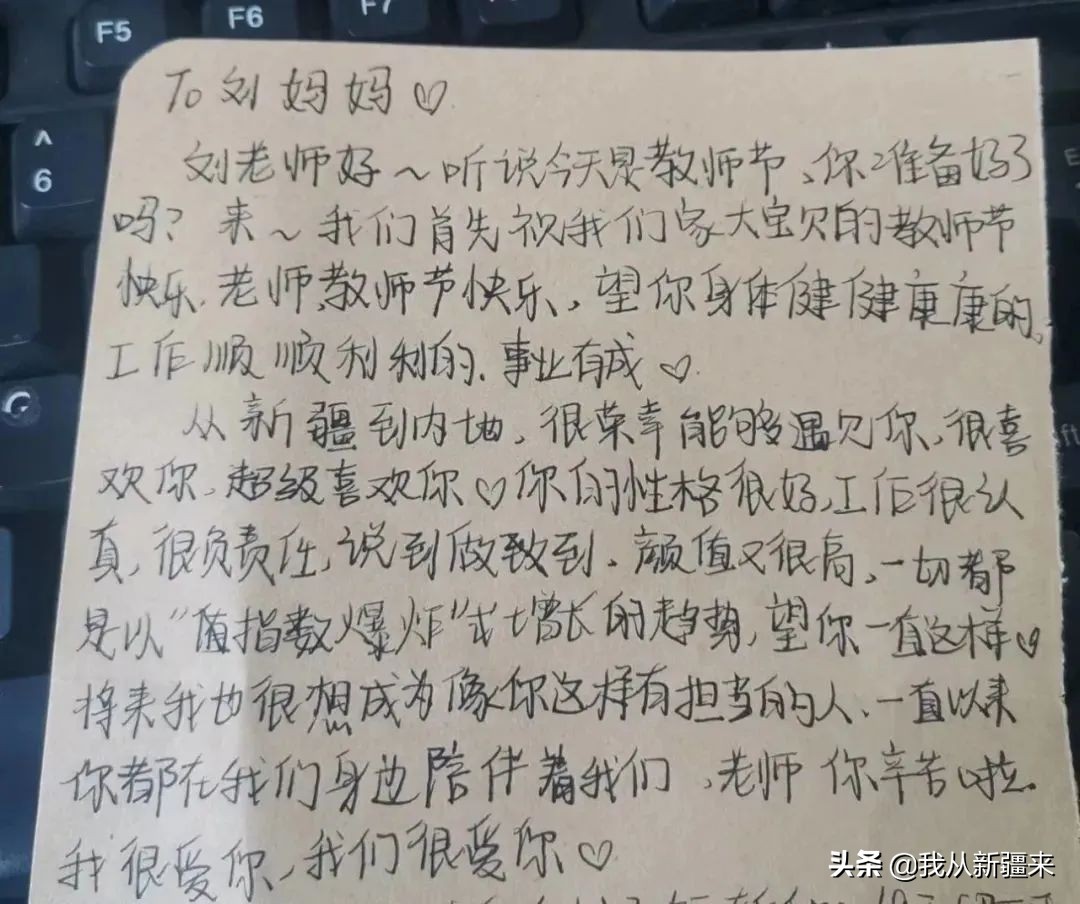 F5
F6
F7
^
6
To 刘妈妈♡
刘老师好~听说今天是教师节、你准备好了
吗?来~我们首先祝我们家大宝贝的教师节
快乐.老师,教师节快乐,望你身体健健康康的,
工作顺顺利利的.事业有成♡.
从新疆到内地,很荣幸能够遇见你,很喜
欢你,超级喜欢你♡你的性格很好,工作很认
真,很负责任,说到做致到.颜值又很高,一切都
是以“值指数爆炸”式增长的趋势,望你一直这样♡
将来我也很想成为像你这样有担当的人、一直以来
你都在我们身边陪伴着我们,老师 你辛苦啦.
我很爱你,我们很爱你♡
头条 @我从新疆来